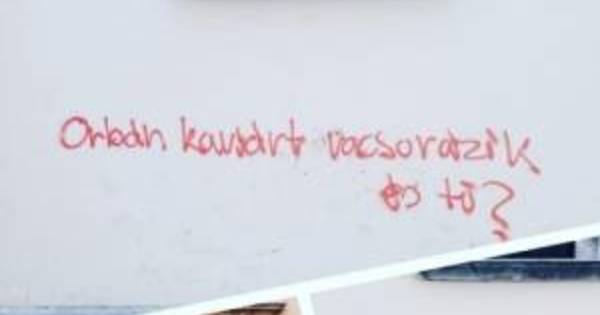 Orbán kaviárt vacsorázik
és ti?